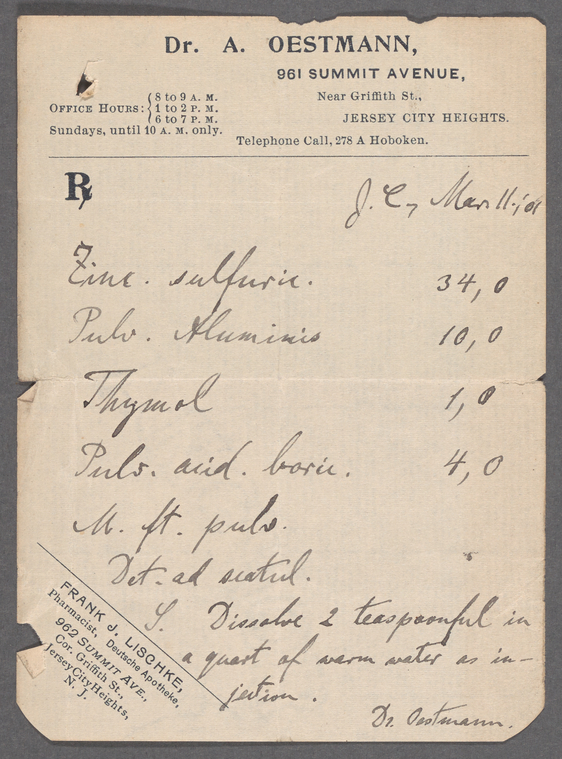 Dr. A. OESTMANN,
961 SUMMIT AVENUE,
Near Griffith St.,
JERSEY CITY HEIGHTS.
Telephone Call, 278 A Hoboken.
OFFICE HOURS: { 8 to 9 A. M.
1 to 2 P. M.
6 to 7 P. M.
Sundays, until 10 A. M. only.
℞
J. C., Mar. 11./01
Zinc. sulfuric. 34,0
Pulv. Aluminis 10,0
Thymol 1,0
Pulv. acid. boric. 4,0
M. ft. pulv.
Det. ad scatul.
S. Dissolve 2 teaspoonful in
a quart of warm water as in-
jection.
Dr. Oestmann.
FRANK J. LISCHKE,
Pharmacist, Deutsche Apotheke,
962 SUMMIT AVE.,
Cor. Griffith St.,
Jersey City Heights,
N. J.